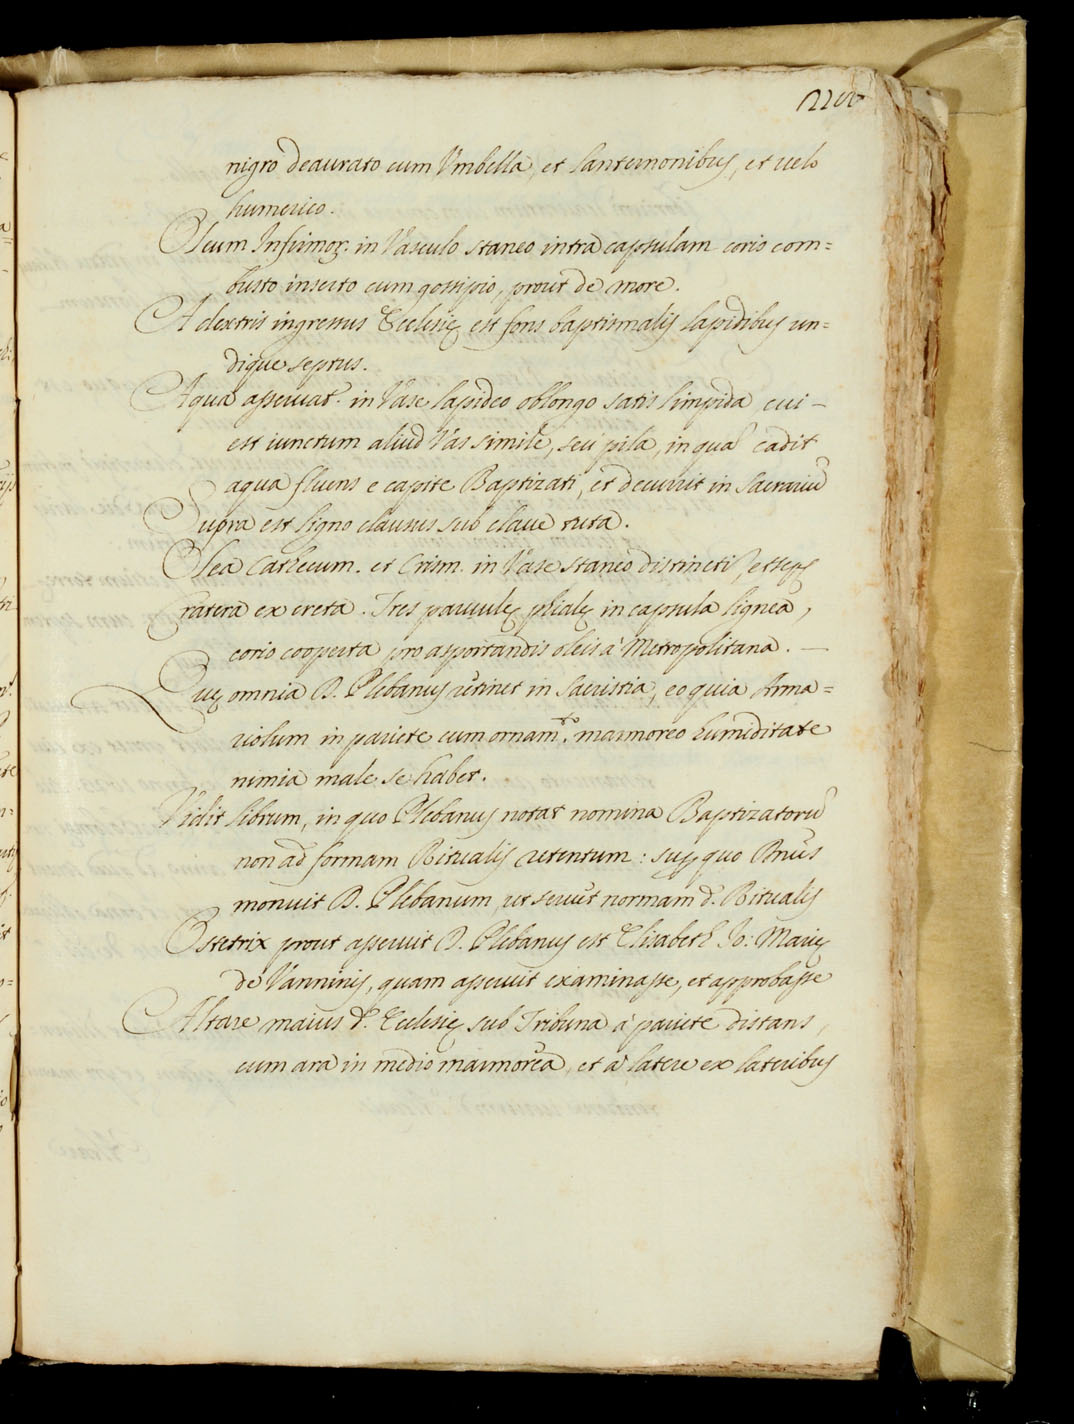 nigro deaurato cum Vmbella, et lanternonibus, et uelo
humerico.
Oleum Infirmor. in Vasculo staneo intra capsulam corio com=
busto inserto cum gossipio, prout de more.
A dextris ingressus Ecclesię est fons baptismalis lapidibus un=
dique septus.
Aqua asseruat. in Vase lapideo oblongo satis limpida cui-
est iunctum aliud Vas simile, seù pila, in qua cadit
aqua fluens e capite Baptizati, et decurrit in Sacrariũ
Supra est ligno clausus sub claue tuta.
Olea Cathecum. et Crism. in Vase staneo distincti, et sep
ratera ex creta. Tres paruulę phialę in capsula lignea,
corio cooperta pro asportandis oleis à Metropolitana. -
Quę omnia D. Plebanus retinet in Sacristia, eo quia Arma=
riolum in pariete cum ornam.to marmoreo humiditate
nimia male se habet.
Vidit librum, in quo Plebanus notat nomina Baptizatorũ
non ad formam Ritualis retentum: sup quo Dnus
monuit D. Plebanum, ut seruet normam d. Ritualis
Ostetrix prout asseruit D. Plebanus est Elisabeth Jo: Marię
de Vanninis, quam asseruit examinasse, et approbasse
Altare maius d. Ecclesię sub Tribuna à pariete distans,
cum ara in medio marmorea, et à latere ex lateribus